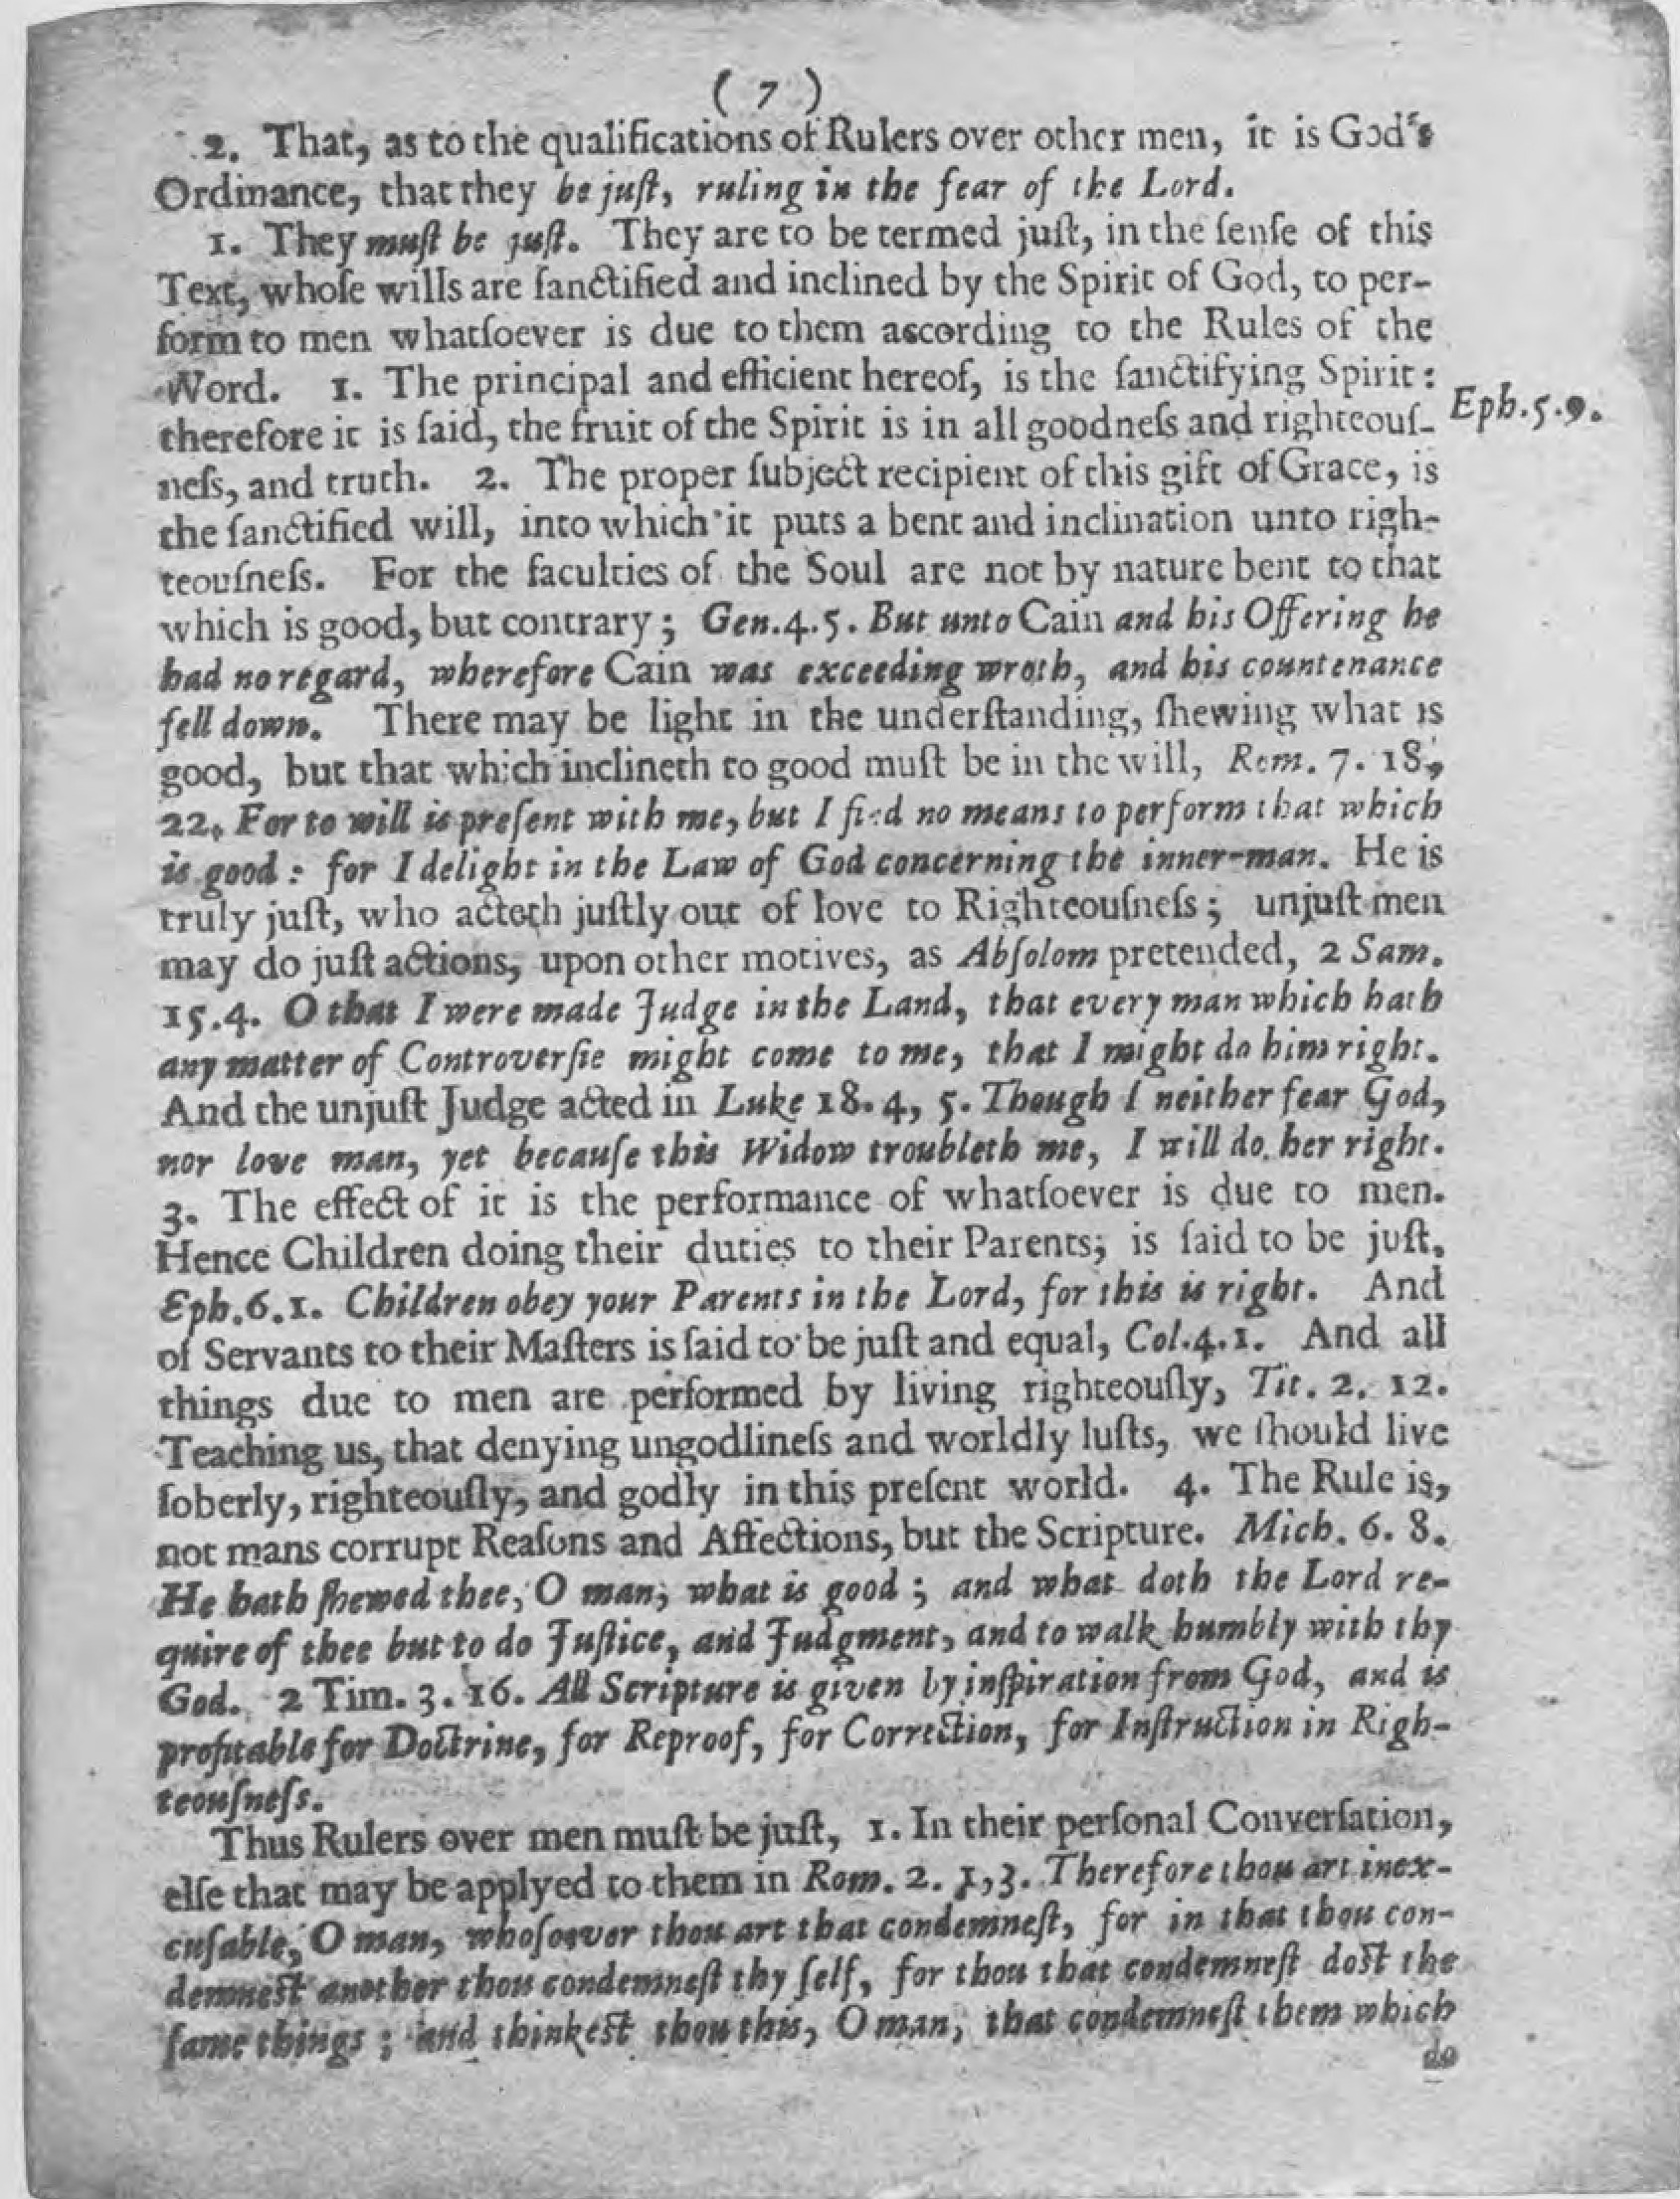 ( 7 )
2. That, as to the qualifications of Rulers over other men, it is God's
Ordinance, that they be juſt, ruling in the fear of the Lord.
1. They muſt be juſt. They are to be termed juſt, in the ſenſe of this
Text, whoſe wills are ſanctified and inclined by the Spirit of God, to per-
form to men whatſoever is due to them according to the Rules of the
Word. 1. The principal and efficient hereof, is the ſanctifying Spirit:
therefore it is ſaid, the fruit of the Spirit is in all goodneſs and righteouſ-
Eph.5.9.
neſs, and truth. 2. The proper ſubject recipient of this gift of Grace, is
the ſanctified will, into which it puts a bent and inclination unto righ-
teouſneſs. For the faculties of the Soul are not by nature bent to that
which is good, but contrary; Gen.4.5. But unto Cain and his Offering he
had no regard, wherefore Cain was exceeding wroth, and his countenance
fell down. There may be light in the underſtanding, ſhewing what is
good, but that which inclineth to good muſt be in the will, Rom. 7. 18,
22. For to will is preſent with me, but I find no means to perform that which
is good: for I delight in the Law of God concerning the inner-man. He is
truly juſt, who acteth juſtly out of love to Righteouſneſs; unjuſt men
may do juſt actions, upon other motives, as Abſolom pretended, 2 Sam.
15.4. O that I were made Judge in the Land, that every man which hath
any matter of Controverſie might come to me, that I might do him right.
And the unjuſt Judge acted in Luke 18. 4, 5. Though I neither fear God,
nor love man, yet becauſe this Widow troubleth me, I will do her right.
3. The effect of it is the performance of whatſoever is due to men.
Hence Children doing their duties to their Parents, is ſaid to be juſt,
Eph.6.1. Children obey your Parents in the Lord, for this is right. And
of Servants to their Maſters is ſaid to be juſt and equal, Col.4.1. And all
things due to men are performed by living righteouſly, Tit. 2. 12.
Teaching us, that denying ungodlineſs and worldly luſts, we ſhould live
ſoberly, righteouſly, and godly in this preſent world. 4. The Rule is,
not mans corrupt Reaſons and Affections, but the Scripture. Mich. 6. 8.
He hath ſhewed thee, O man, what is good; and what doth the Lord re-
quire of thee but to do Juſtice, and Judgment, and to walk humbly with thy
God. 2 Tim. 3. 16. All Scripture is given by inſpiration from God, and is
profitable for Doctrine, for Reproof, for Correction, for Inſtruction in Righ-
teouſneſs.
Thus Rulers over men muſt be juſt, 1. In their perſonal Converſation,
elſe that may be applyed to them in Rom. 2. 1,3. Therefore thou art inex-
cuſable, O man, whoſoever thou art that condemneſt, for in that thou con-
demneſt another thou condemneſt thy ſelf, for thou that condemneſt doſt the
ſame things; and thinkeſt thou this, O man, that condemneſt them which
do